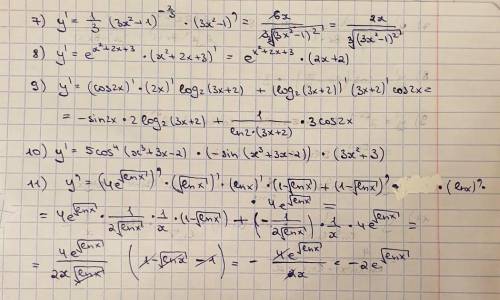 7) y' = 1/3 (3x²-1)^(-2/3) · (3x²-1)' = 6x / 3∛(3x²-1)² = 2x / ∛(3x²-1)²
8) y' = e^(x²+2x+3) · (x²+2x+3)' = e^(x²+2x+3) · (2x+2)
9) y' = (cos2x)' · (2x)' log₂(3x+2) + (log₂(3x+2))' (3x+2)' cos2x =
= -sin2x · 2 log₂(3x+2) + 1/(ln2·(3x+2)) · 3cos2x
10) y' = 5cos⁴(x³+3x-2) · (-sin(x³+3x-2)) · (3x²+3)
11) y' = (4e^√lnx)' · (√lnx)' · (lnx)' · (1-√lnx) + (1-√lnx)' · (lnx)' ·
· 4e^√lnx =
= 4e^√lnx · 1/(2√lnx) · 1/x · (1-√lnx) + (-1/(2√lnx)) · 1/x · 4e^√lnx =
= 4e^√lnx / (2x√lnx) (1-√lnx-1) = - 4e^√lnx / 2x = -2e^√lnx